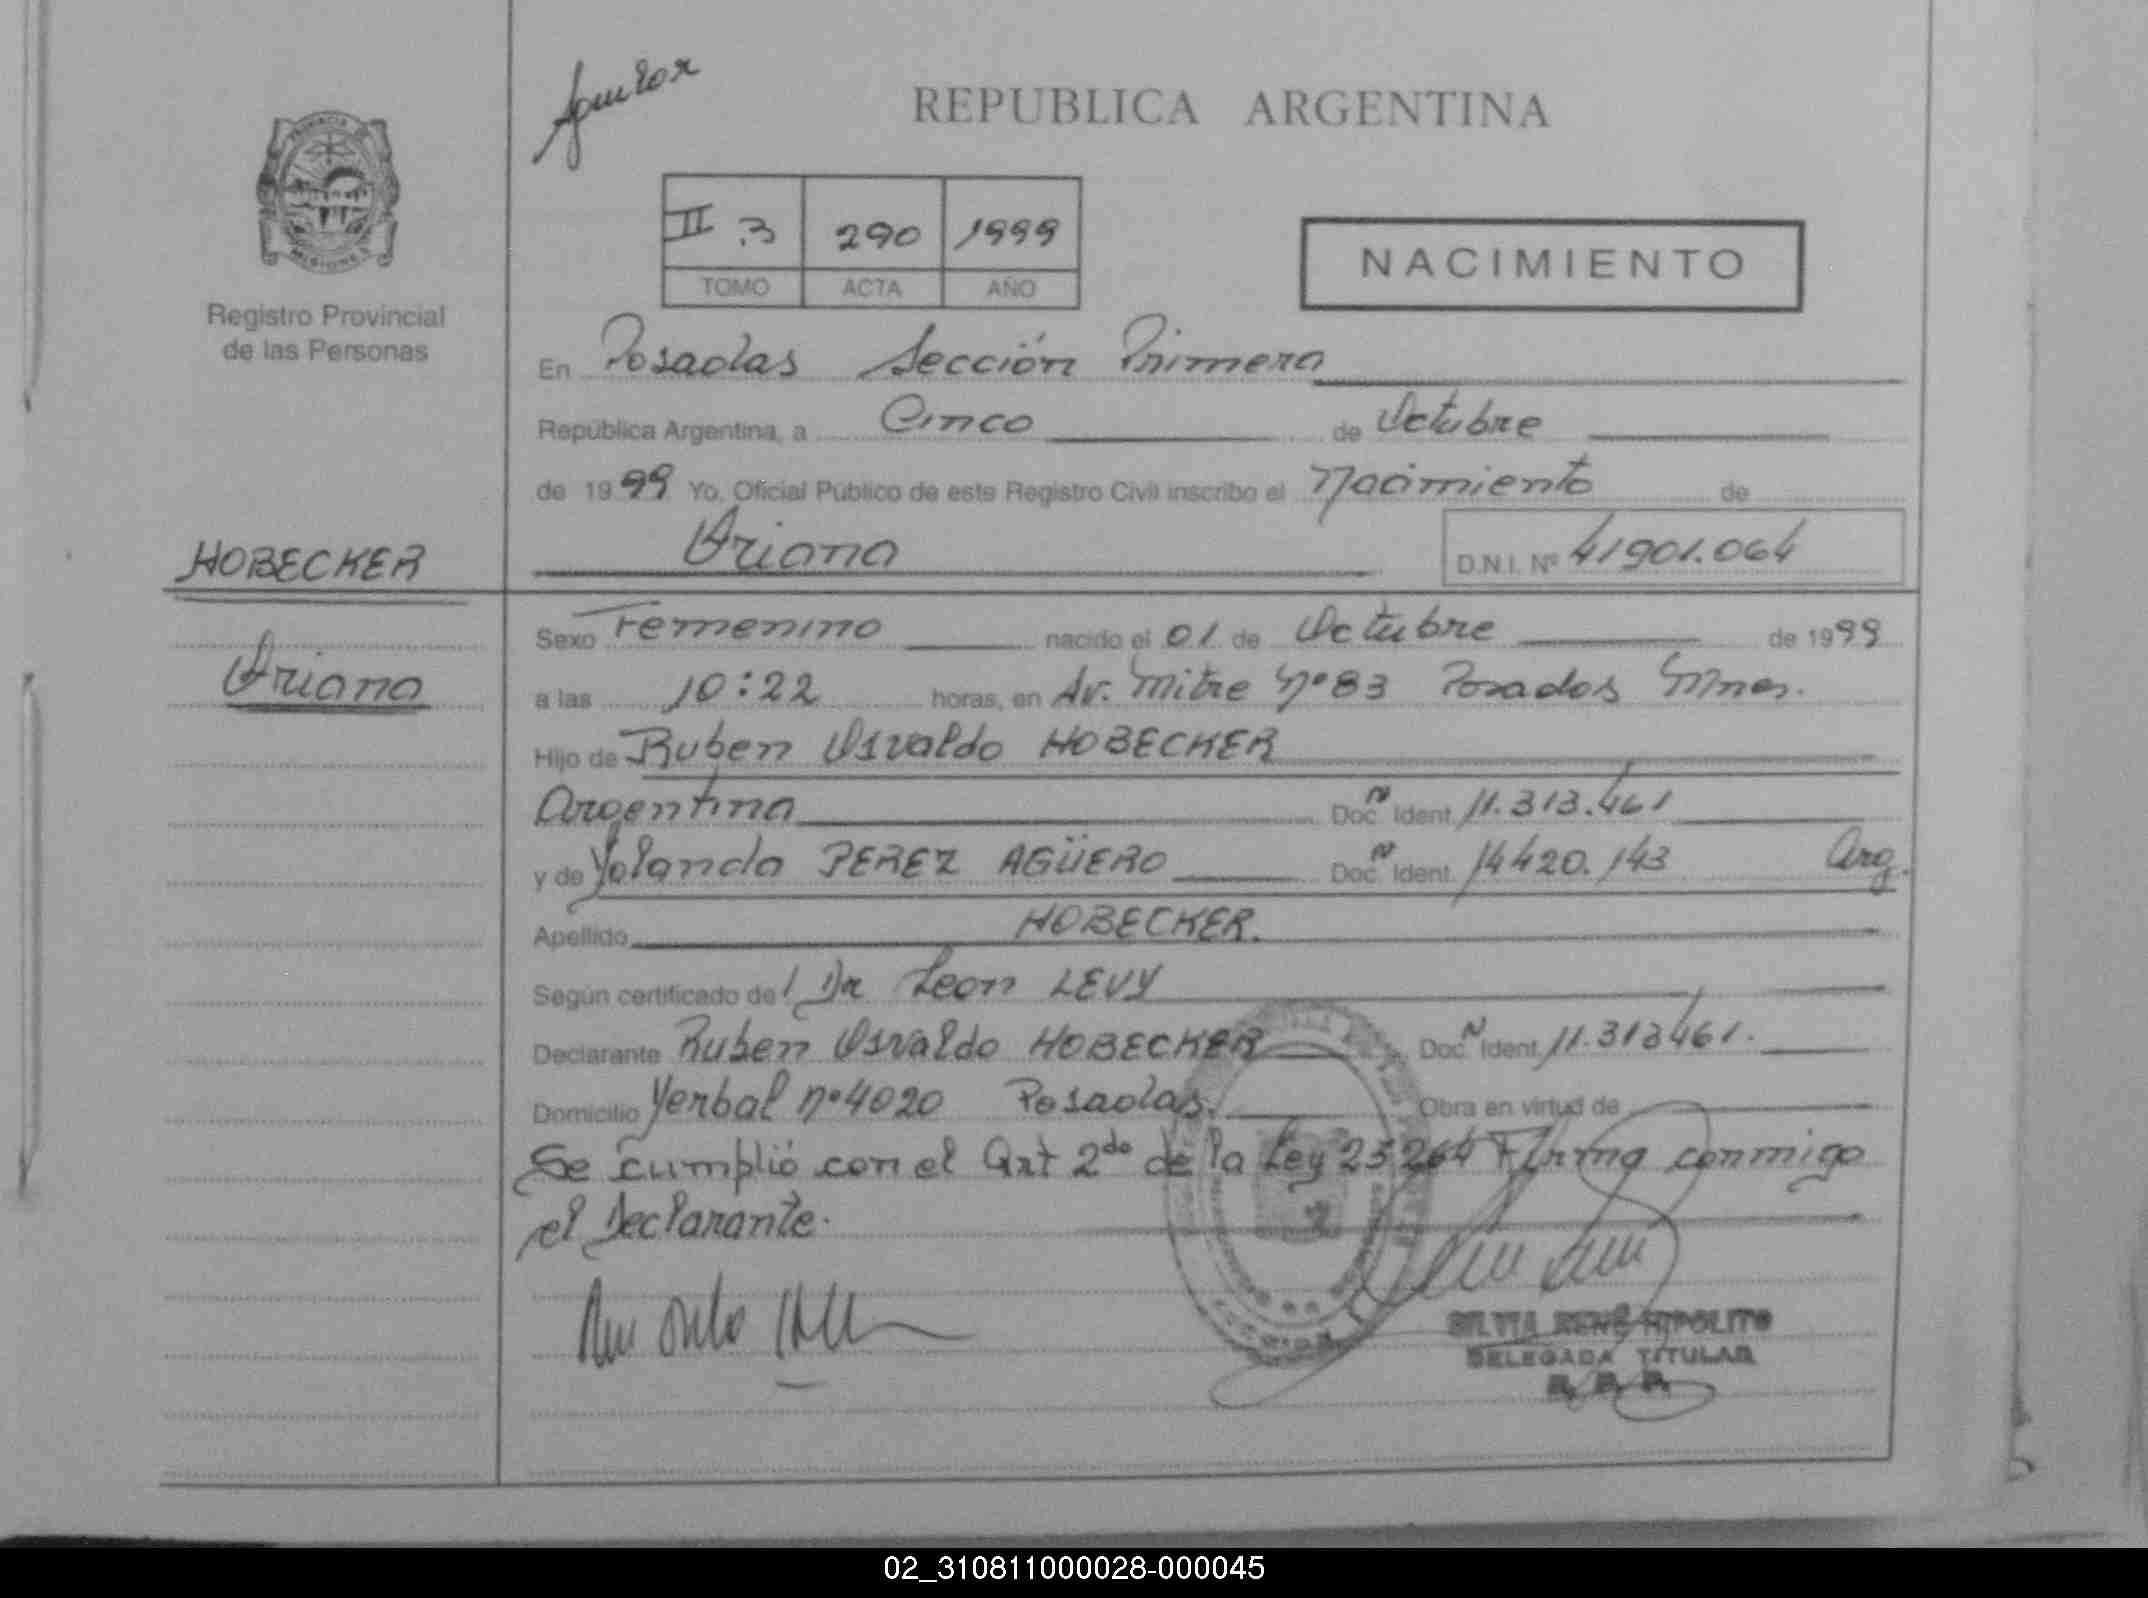 REPUBLICA ARGENTINA
II 3 290 1999
TOMO ACTA AÑO
NACIMIENTO
Registro Provincial
de las Personas
En Posadas Sección Primera
República Argentina, a Cinco de Octubre
de 1999 Yo, Oficial Público de este Registro Civil inscribo el Nacimiento de
Oriana D.N.I. Nº 41901.064
HOBECKER
Oriana
Sexo Femenino nacido el 01 de Octubre de 1999
a las 10:22 horas, en Av. Mitre Nº 83 Posadas Mnes.
Hijo de Ruben Osvaldo HOBECKER
Argentina Doc. N Ident. 11.313.461
y de Yolanda PEREZ AGÜERO Doc. N Ident. 14420.143 Arg.
Apellido HOBECKER.
Según certificado del Dr Leon LEVY
Declarante Ruben Osvaldo HOBECKER Doc. N Ident. 11.313461.
Domicilio Yerbal nº 4020 Posadas. Obra en virtud de
Se cumplió con el Art 2do de la Ley 23264 Firma conmigo
el Declarante.
SILVIA RENÉ HIPOLITO
DELEGADA TITULAR
R. P. P.
02_310811000028-000045